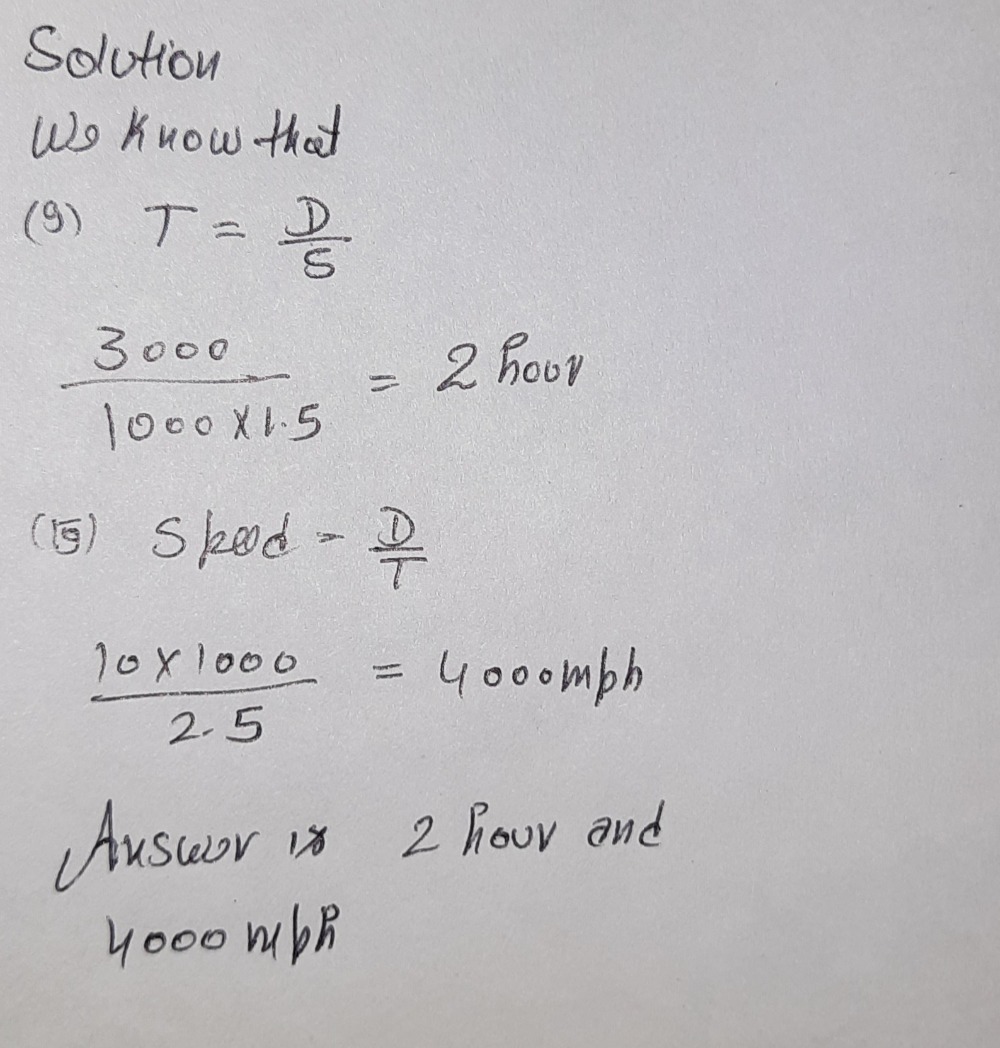 Solution
We know that
(9) T = D/S
3000 / 1000 X 1.5 = 2 hour
Speed = D/T
10 X 1000 / 2.5 = 4000mph
Answer is 2 hour and
4000 mph